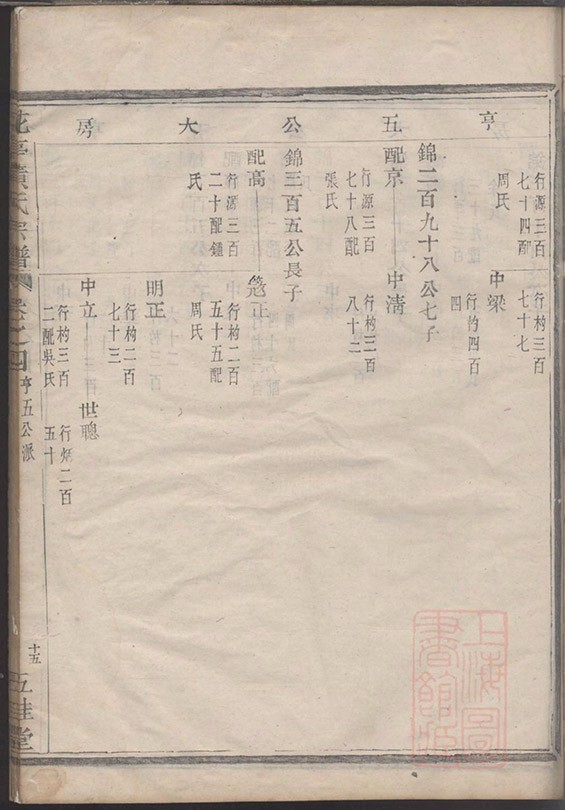 亨五公大房
行源三百 行杓三百
七十四配 七十七
周氏
中梁
行杓四百
四
錦二百九十八公七子
配京 中淸
行源三百 行杓三百
七十八配 八十二
張氏
錦三百五公長子
配高 正
行源三百 行杓二百
二十配鍾 五十五配
氏 周氏
明正
行杓二百
七十三
中立 世聰
行杓三百 行炳二百
二配吳氏 五十
黃氏宗譜 卷之四 亨五公派 十五 五桂堂
上海圖
書館藏